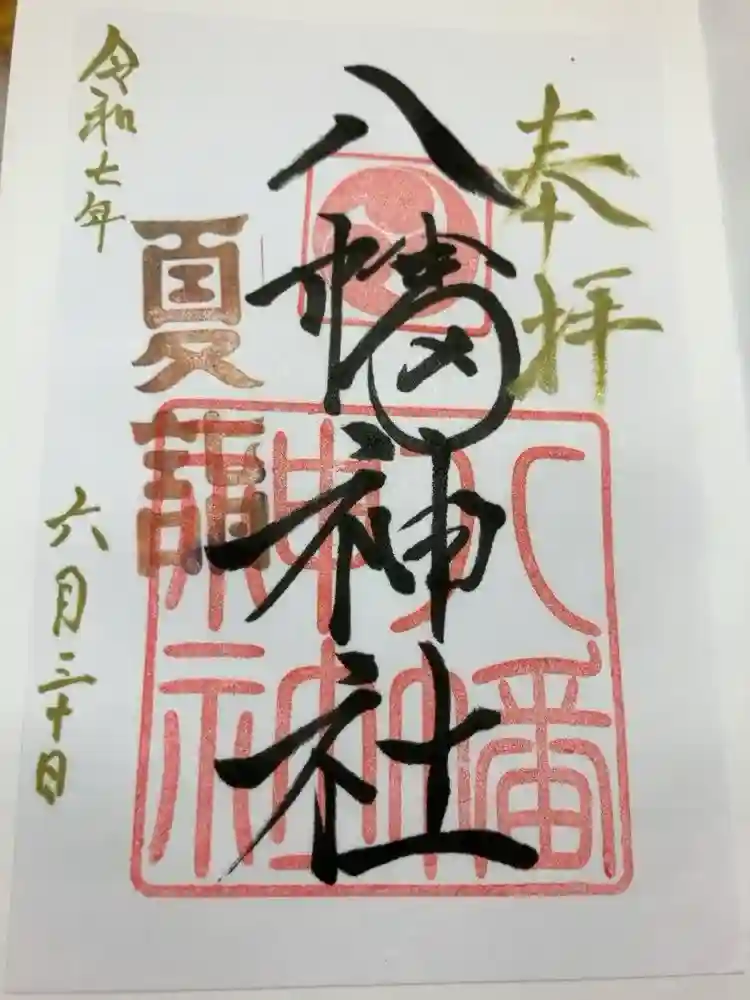 奉拝
八幡神社
八幡神社
夏詣
令和七年
六月三十日